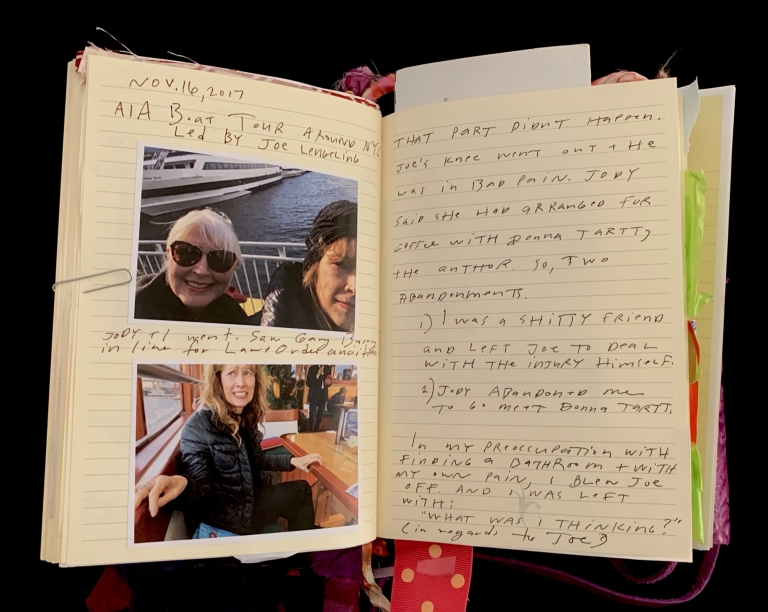 NOV. 16, 2017
AIA BOAT TOUR AROUND NYC
LED BY JOE LENGELING
JODY + I went. Saw Gary
in line for Law + Order audition
THAT PART DIDN'T HAPPEN.
JOE'S KNEE WENT OUT + HE
WAS IN BAD PAIN. JODY
SAID SHE HAD ARRANGED FOR
COFFEE WITH DONNA TARTT,
THE AUTHOR. SO, TWO
ABANDONMENTS.
1) I WAS A SHITTY FRIEND
AND LEFT JOE TO DEAL
WITH THE INJURY HIMSELF.
2) JODY ABANDONED me
TO GO MEET DONNA TARTT.
IN MY PREOCCUPATION WITH
FINDING A BATHROOM + WITH
MY OWN PAIN, I BLEW JOE
OFF. AND I WAS LEFT
WITH:
"WHAT WAS I THINKING?"
(in regards to JOE)